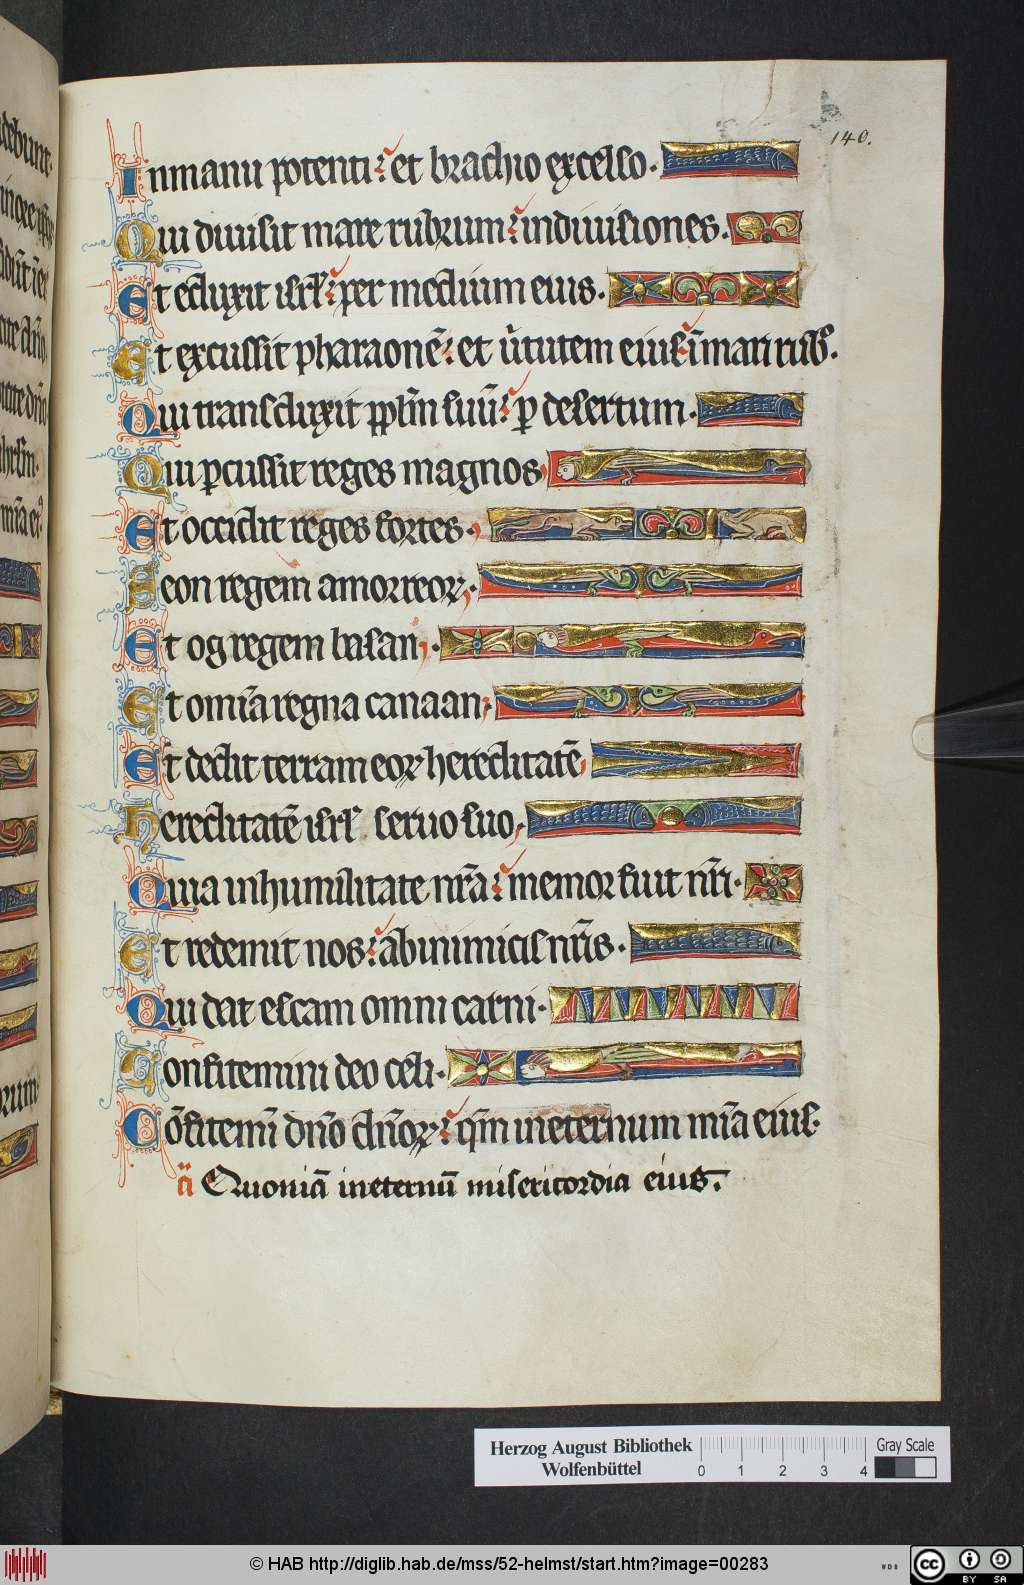 140.
Inmanu potenti: et brachio excelso.
Qui diuisit mare rubrum: indiuisiones.
Et eduxit isrl̃: per medium eius.
Et excussit pharaonē: et ũtutem eius ĩ mari rub̃.
Qui transduxit pplm̃ suū: ꝑ desertum.
Qui ꝑcussit reges magnos
Et occidit reges fortes.
Seon regem amorreoꝝ.
Et og regem basan.
Et om̃ia regna canaan.
Et dedit terram eoꝝ hereditatē
Hereditatē isrl̃ seruo suo.
Quia inhumilitate nr̃a: memor fuit nr̃i.
Et redemit nos: abinimicis nr̃is.
Qui dat escam omni carni.
Confitemini deo celi.
Cõfitemĩ dñõ dñoꝝ: qm̃ ineternum mĩa eius.
añ Quoniã ineternũ misericordia eius.
debunt.
Herzog August Bibliothek
Wolfenbüttel
0 1 2 3 4
Gray Scale
© HAB http://diglib.hab.de/mss/52-helmst/start.htm?image=00283
WDB
cc BY SA